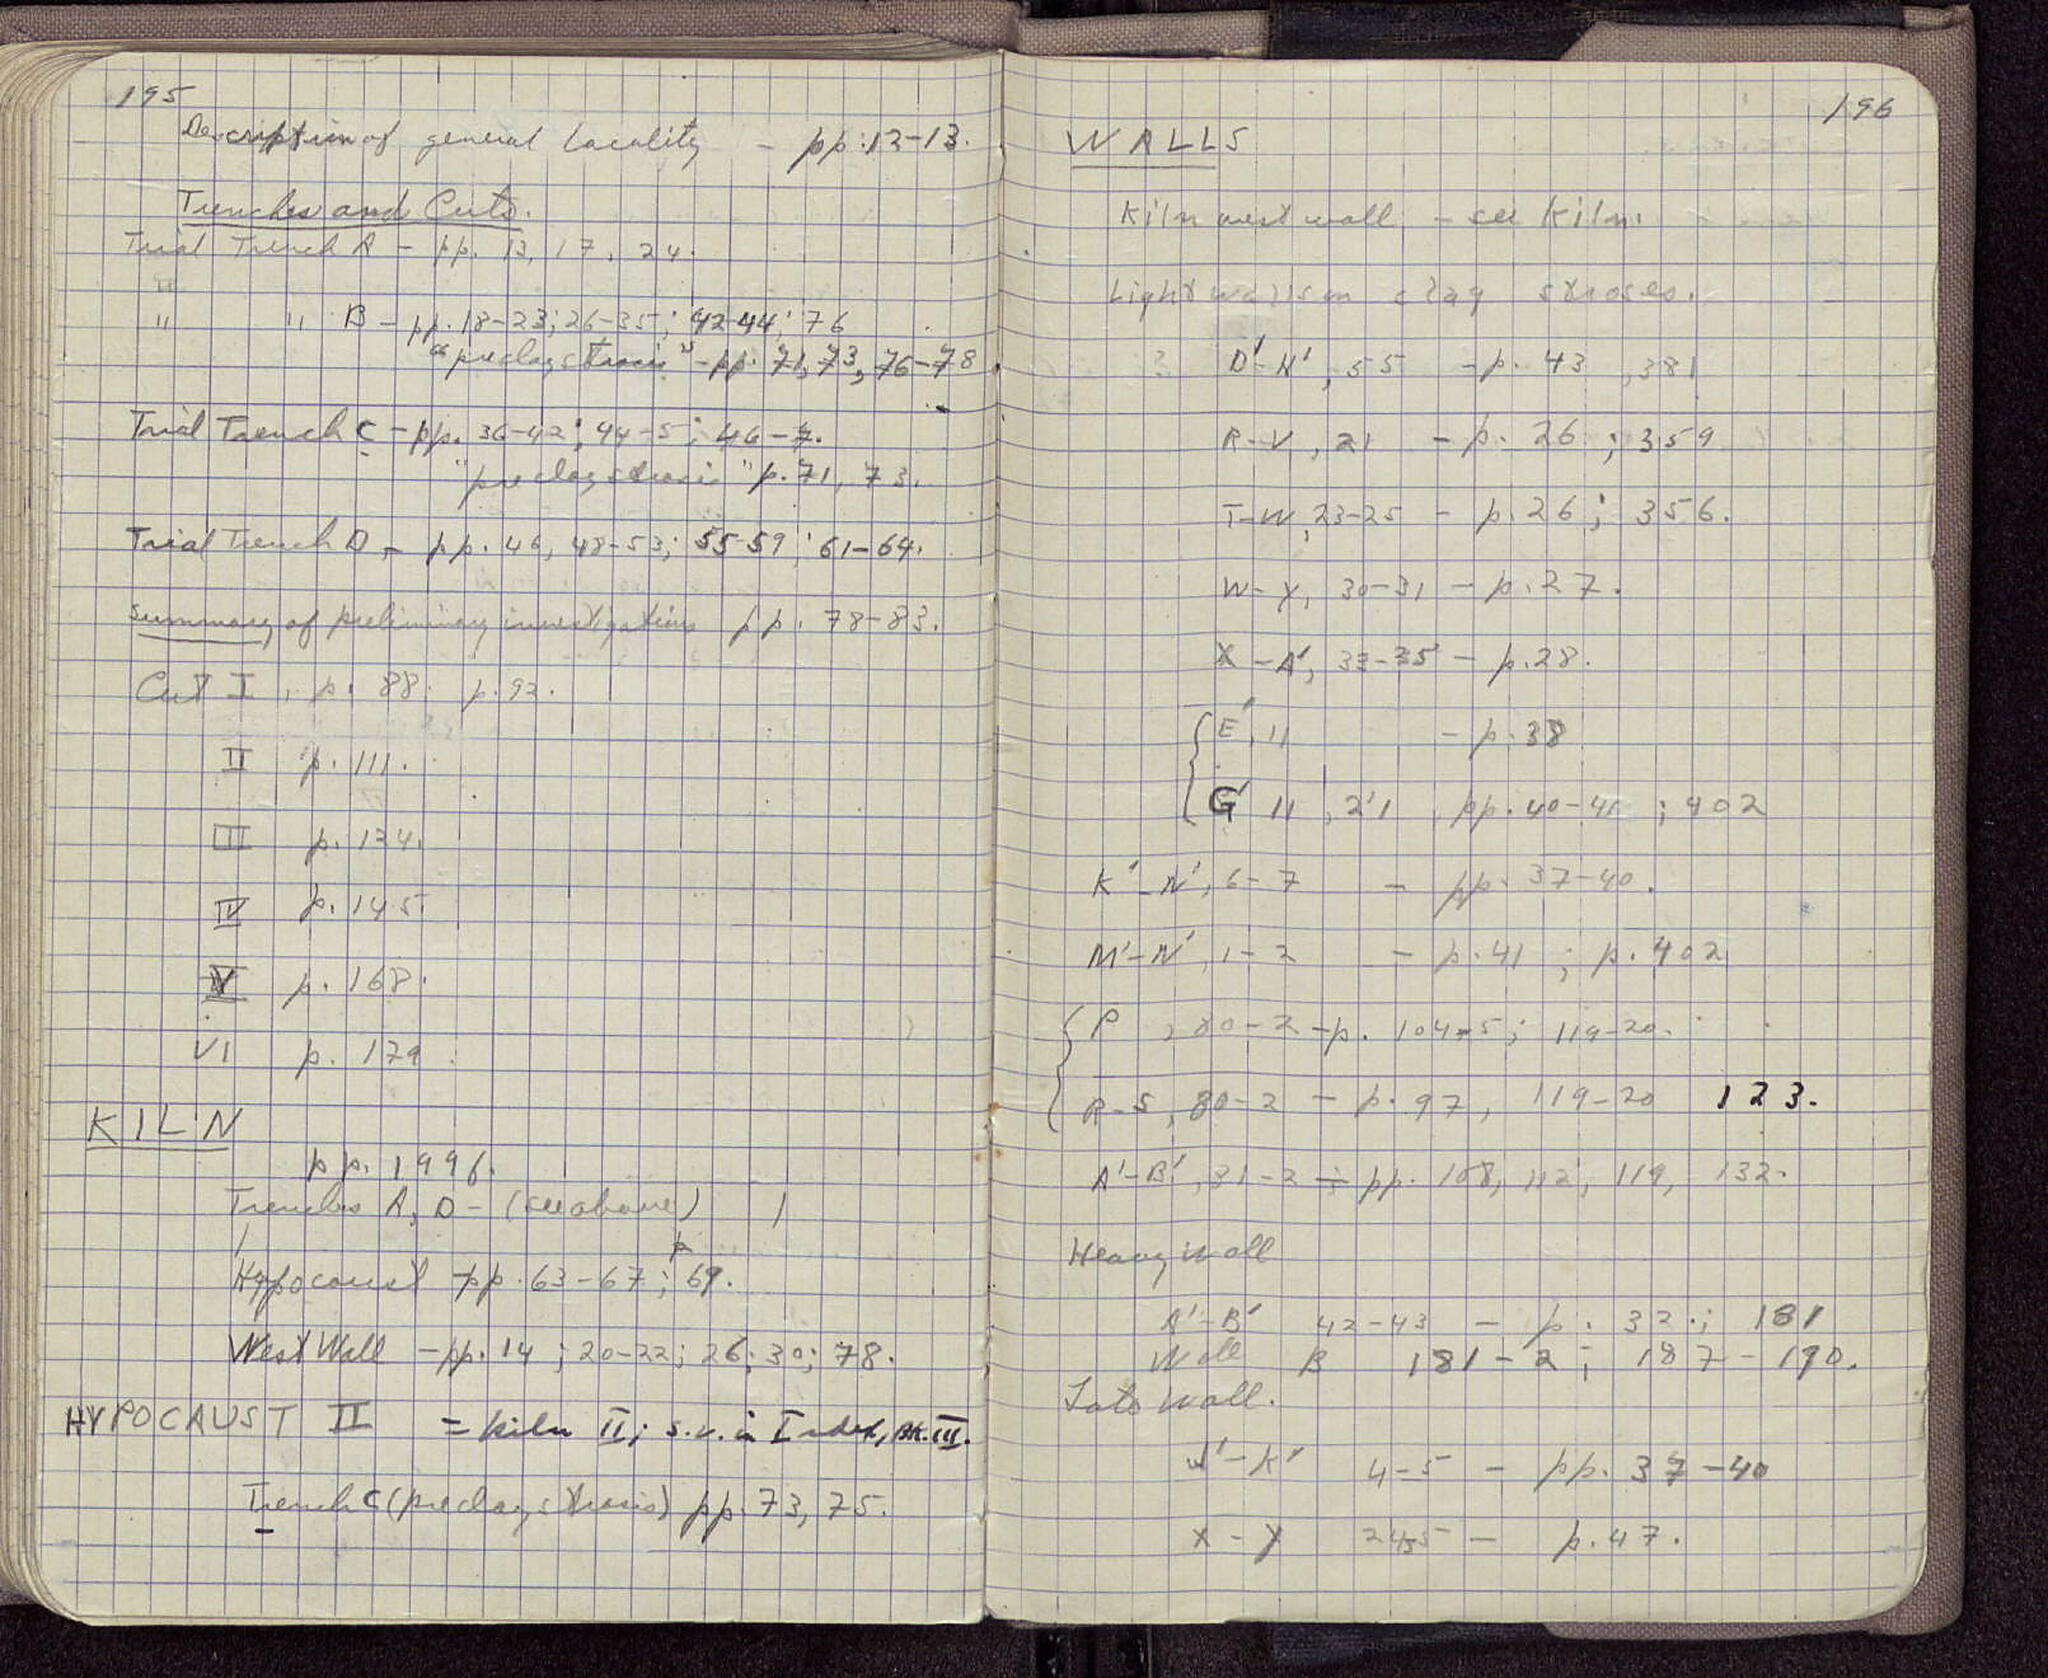 195
Description of general locality - pp. 12-13.
Trenches and Cuts.
Trial Trench A - pp. 13, 17, 24.
" " B - pp. 18-23; 26-35; 42-44; 76
"preclay strosis" - pp. 71, 73, 76-78
Trial Trench C - pp. 36-42; 44-5; 46-7.
"preclay strosis" p. 71, 73.
Trial Trench D - pp. 46, 48-53; 55-59; 61-64.
Summary of preliminary investigations pp. 78-83.
Cut I, p. 88. p. 92.
II p. 111.
III p. 134.
IV p. 145.
V p. 168.
VI p. 179.
KILN
pp. 1996.
Trenches A, D - (see above)
Hypocaust - pp. 63-67; 69.
West Wall - pp. 14; 20-22; 26; 30; 78.
HYPOCAUST II = kiln II; s.v. in Index, BK. III.
Trench C (preclay strosis) pp. 73, 75.
196
WALLS
Kiln west wall - see Kiln.
Light walls in clay stroses.
D'-H', 55 - p. 43, 381
R-V, 21 - p. 26; 359
T-W, 23-25 - p. 26; 356.
W-Y, 30-31 - p. 27.
X-A', 33-35 - p. 28.
E', 11 - p. 38
G' 11, 2'1, pp. 40-41; 402
K'-N', 6-7 - pp. 37-40.
M'-N', 1-2 - p. 41; p. 402
P, 80-2 - p. 104-5; 119-20.
R-S, 80-2 - p. 97, 119-20 123.
A'-B', 81-2 - pp. 108, 112, 119, 132.
Heavy wall
A'-B' 42-43 - p. 32.; 181
Wall B 181-2; 187-190.
Late wall.
J'-K' 4-5 - pp. 37-40
X-Y - p. 47.